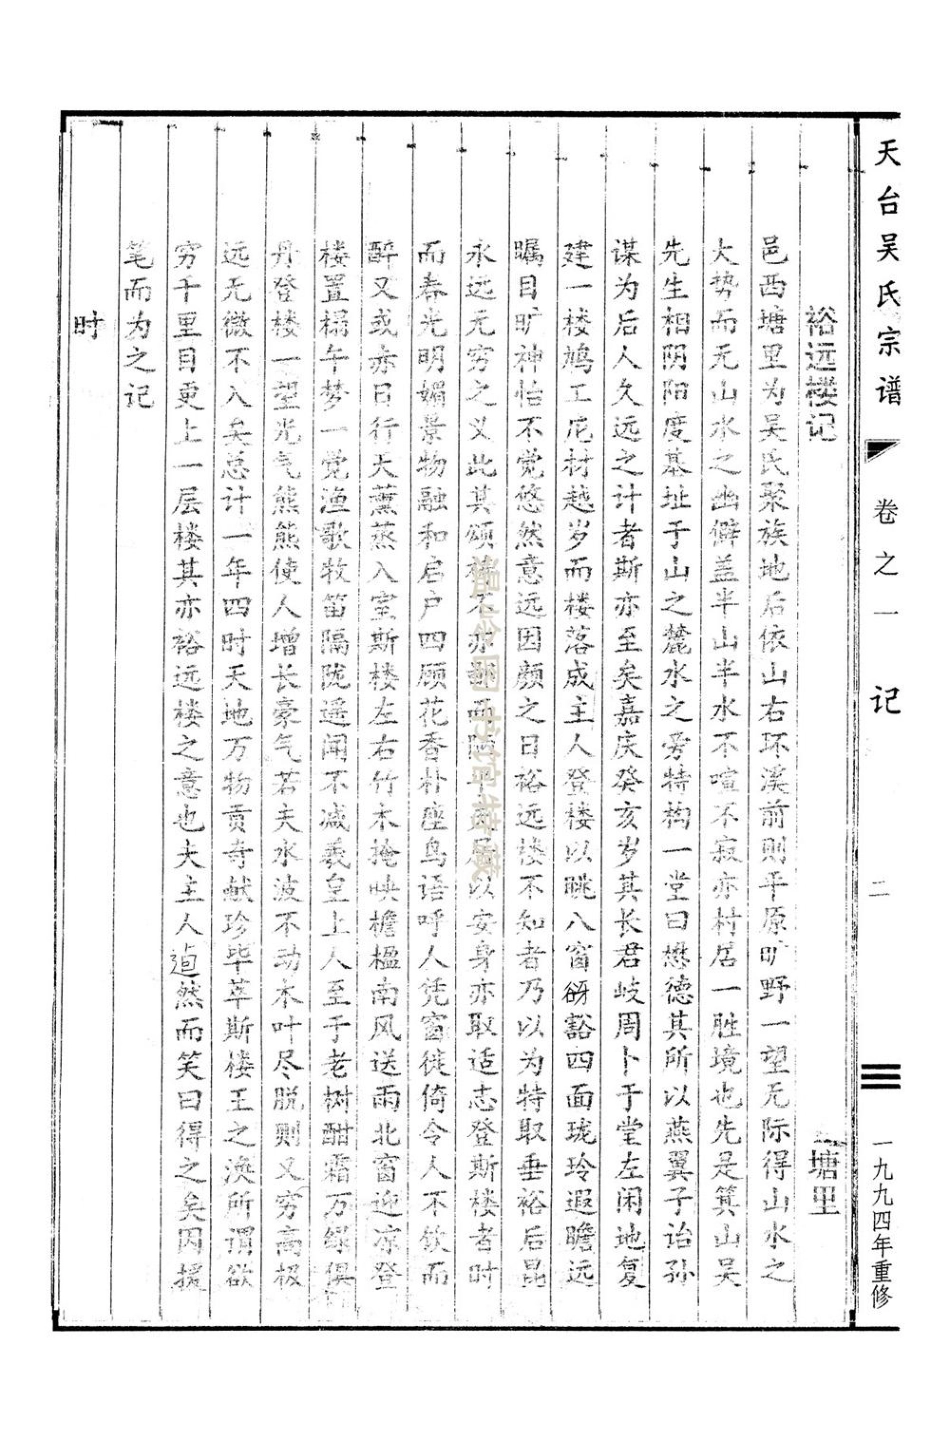 天台吴氏宗谱
卷之一
记
二
一九九四年重修
裕远楼记
塘里
邑西塘里为吴氏聚族地后依山右环溪前則平原旷野一望无际得山水之
大势而无山水之幽僻盖半山半水不喧不寂亦村居一胜境也先是箕山吴
先生相阴阳度基址于山之麓水之旁特构一堂曰懋德其所以燕翼子诒孙
谋为后人久远之计者斯亦至矣嘉庆癸亥岁其长君岐周卜于堂左闲地复
建一楼鸠工庀材越岁而楼落成主人登楼以眺八窗谺豁四面珑玲遐瞻远
瞩目旷神怡不觉悠然意远因颜之曰裕远楼不知者乃以为特取垂裕后昆
永远无穷之义此其颂祷不亦而以安身亦取适志登斯楼者时
而春光明媚景物融和启户四顾花香扑座鸟语呼人凭窗徙倚令人不饮而
醉又或赤日行天薰蒸入室斯楼左右竹木掩映檐楹南风送雨北窗迎凉登
楼置榻午梦一觉渔歌牧笛隔陇遥闻不减羲皇上人至于老树酣霜万绿俱
丹登楼一望光气熊熊使人增长豪气若夫水波不动木叶尽脱则又穷高极
远无微不入矣总计一年四时天地万物贡奇献珍毕萃斯楼王之涣所谓欲
穷千里目更上一层楼其亦裕远楼之意也夫主人逌然而笑曰得之矣因援
笔而为之记
时